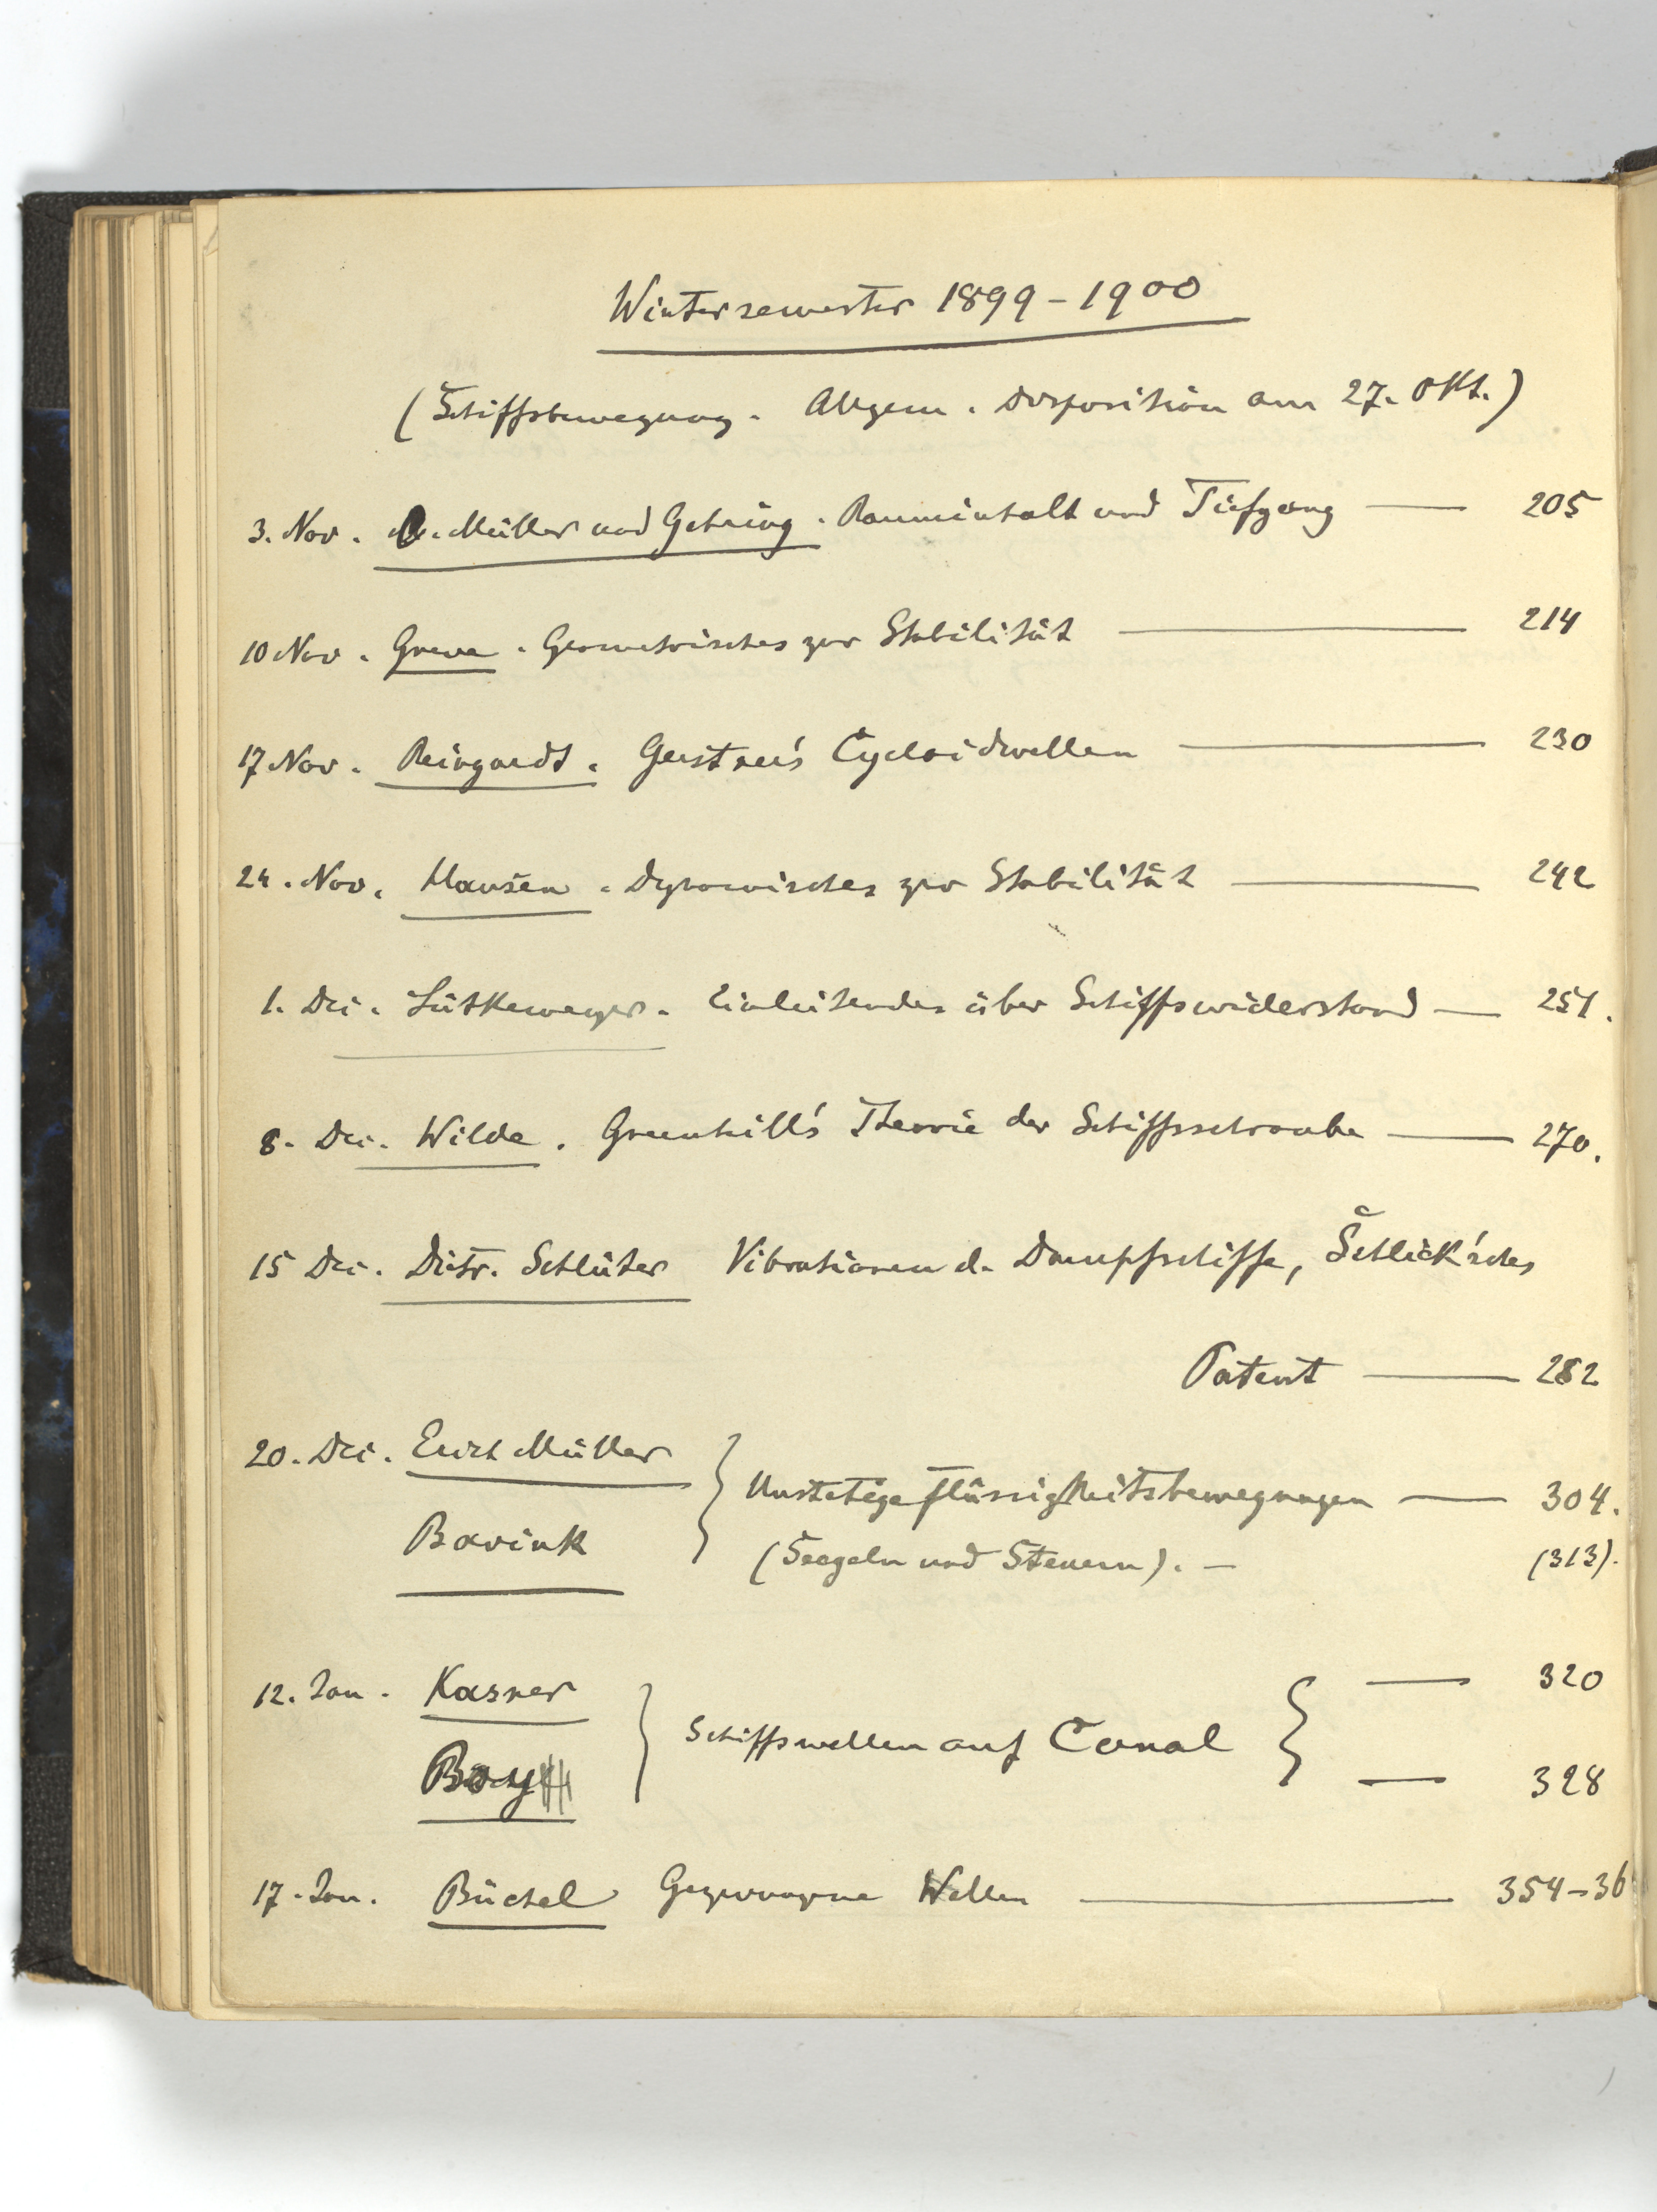 Wintersemester 1899–1900
(Schiffsbewegung. Allgem. Disposition am 27. Okt.)
3. Nov. Müller und Gehring. Rauminhalt und Tiefgang — 205
10 Nov. Greve. Geometrisches zur Stabilität — 214
17 Nov. Reingardt. Gerstner's Cycloidwellen — 230
24. Nov. Hansen. Dynamisches zur Stabilität — 242
1. Dec. Lütkemeyer. Einleitendes über Schiffswiderstand — 251.
8. Dec. Wilde. Greenhill's Theorie der Schiffsschraube — 270.
15 Dec. Dietr. Schlüter Vibrationen d. Dampfschiffe, Schlick'sches
Patent — 282
20. Dec. Erich Müller
Bavink } Unstetige Flüssigkeitsbewegungen — 304.
(Seegeln und Steuern). — (313).
12. Jan. Kasner — 320
Boy } Schiffswellen auf Canal { — 328
17. Jan. Büchel Gezwungene Wellen — 354–36